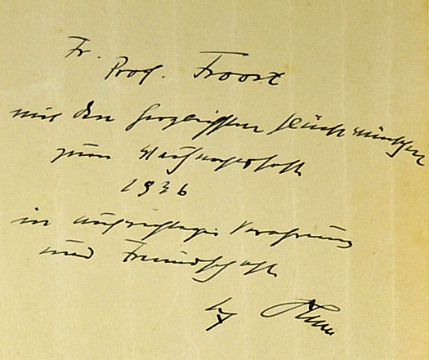 Fr. Prof. Froost
mit den herzlichsten Glückwünschen
zum Weihnachtsfeste
1936
in aufrichtiger Verehrung
und Freundschaft